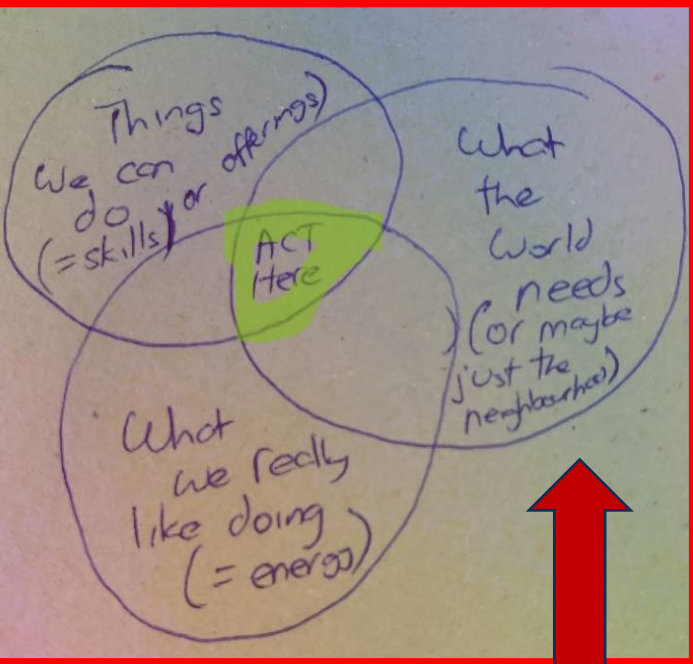 Things
we can
do or offerings)
(=skills)
What
the
World
needs
(or maybe
just the
neighbourhood)
ACT
Here
What
we really
like doing
(= energy)